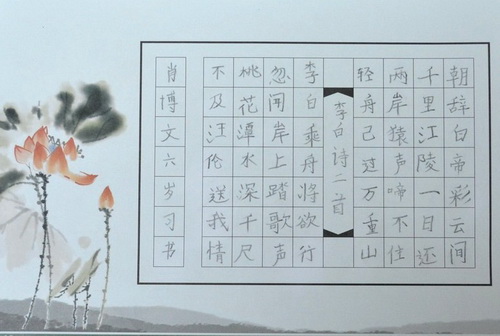 朝辞白帝彩云间
千里江陵一日还
两岸猿声啼不住
轻舟已过万重山
李白诗二首
李白乘舟将欲行
忽闻岸上踏歌声
桃花潭水深千尺
不及汪伦送我情
肖博文六岁习书